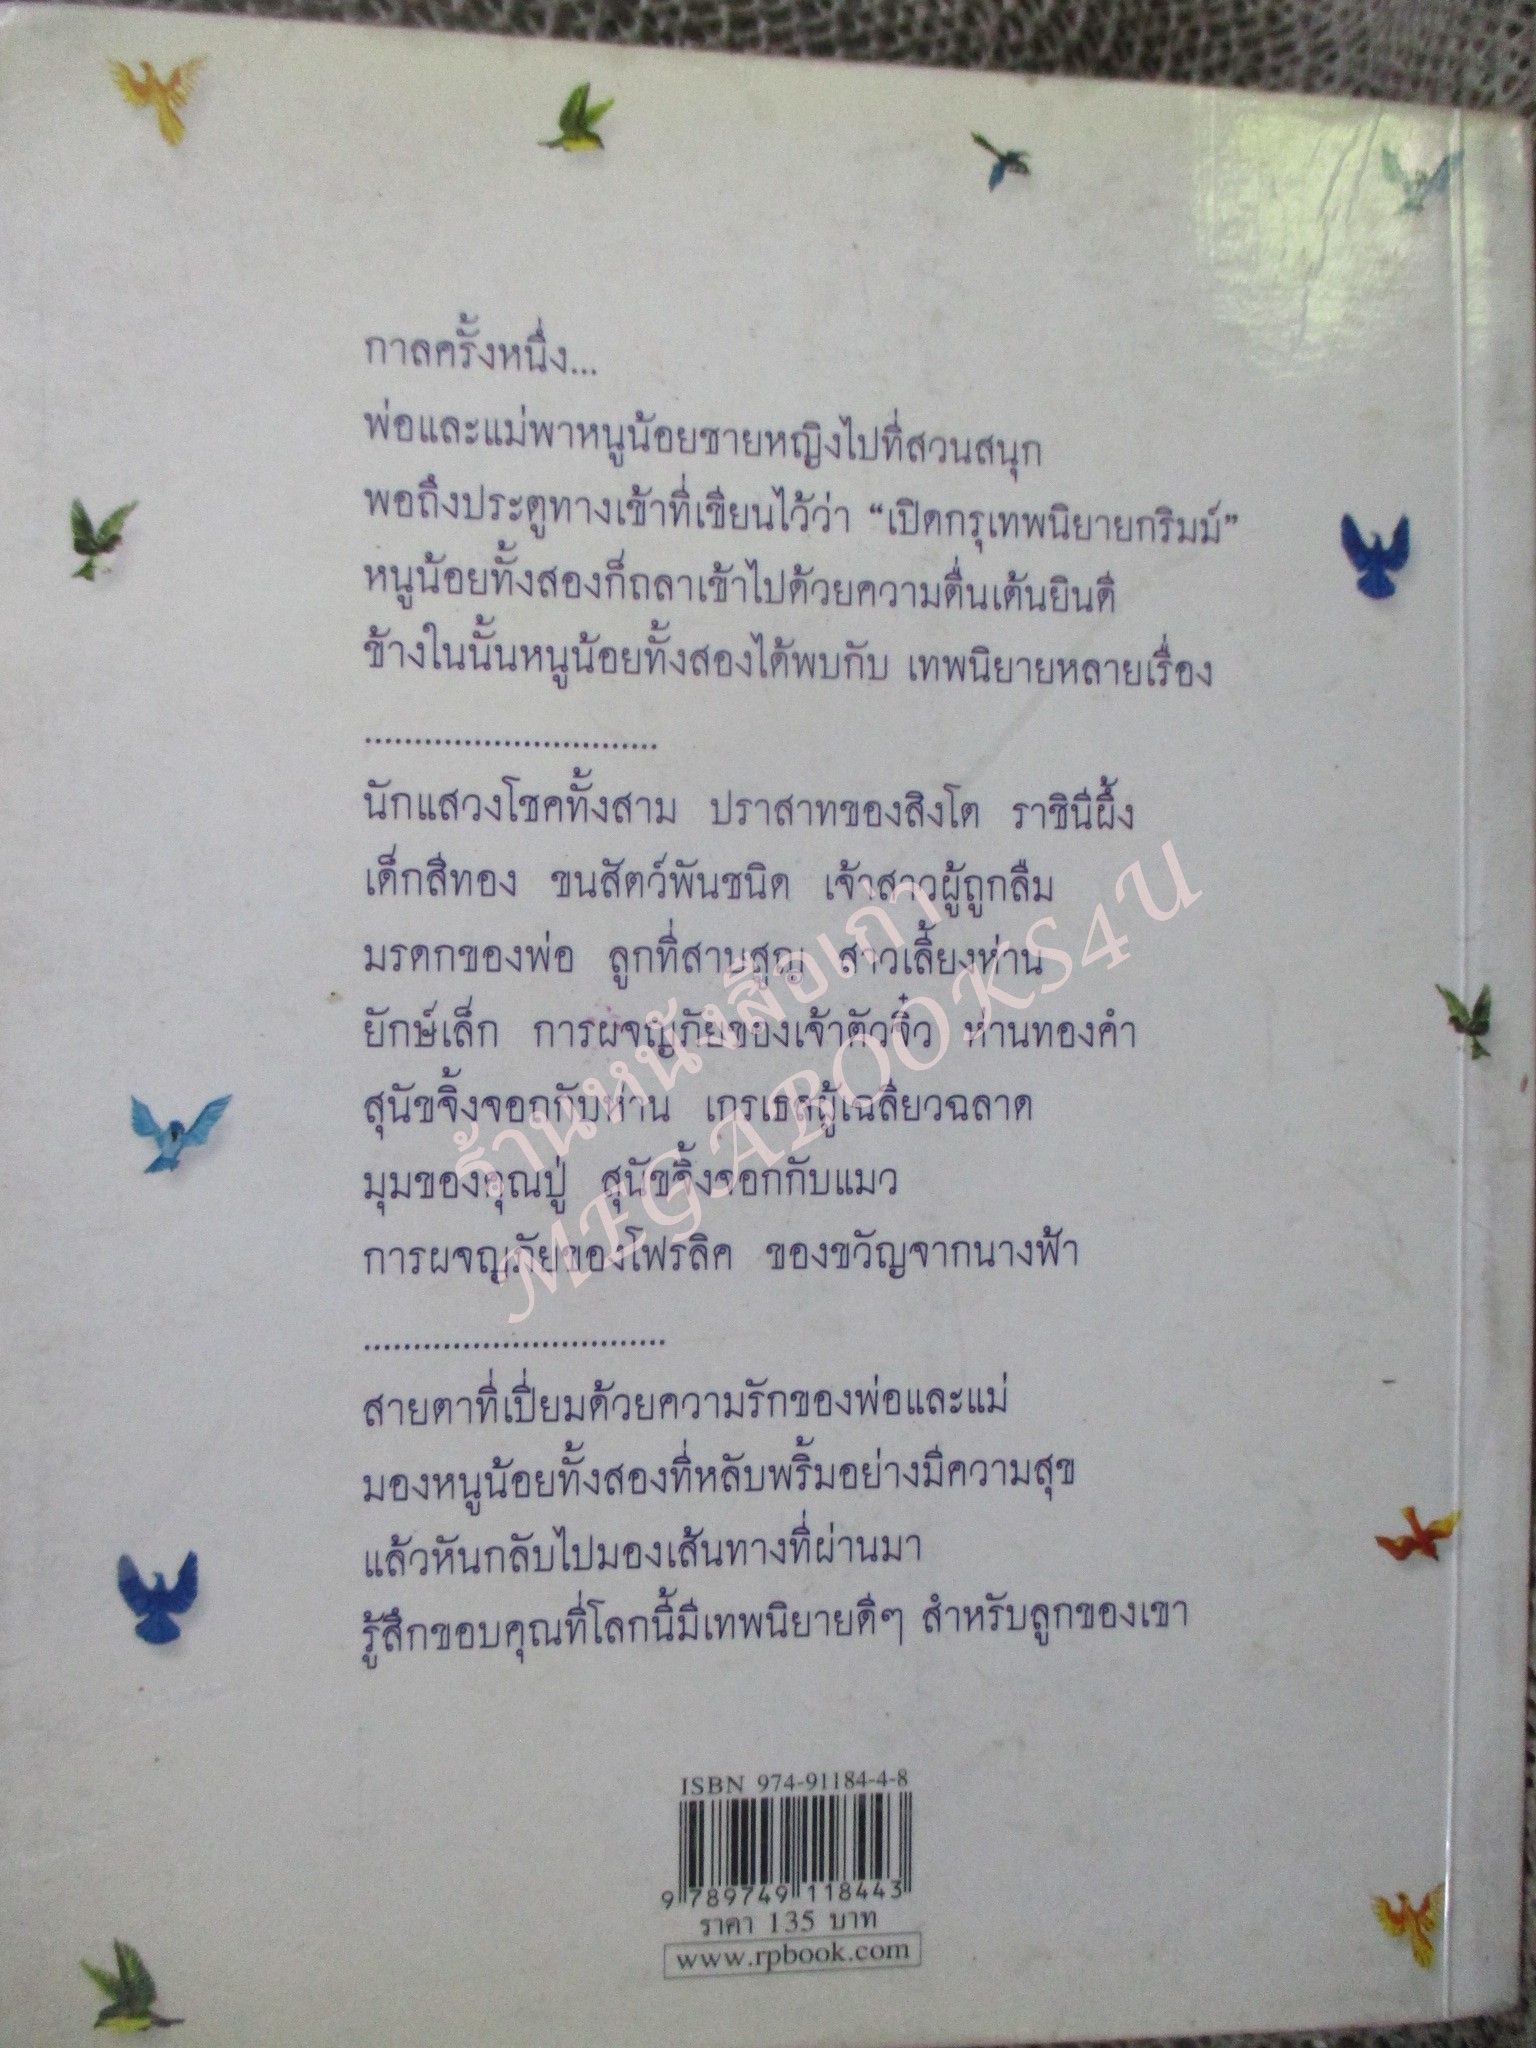 กาลครั้งหนึ่ง...
พ่อและแม่พาหนูน้อยชายหญิงไปที่สวนสนุก
พอถึงประตูทางเข้าที่เขียนไว้ว่า “เปิดกรุเทพนิยายกริมม์”
หนูน้อยทั้งสองก็ถลาเข้าไปด้วยความตื่นเต้นยินดี
ข้างในนั้นหนูน้อยทั้งสองได้พบกับ เทพนิยายหลายเรื่อง
..............................
นักแสวงโชคทั้งสาม ปราสาทของสิงโต ราชินีผึ้ง
เด็กสีทอง ขนสัตว์พันชนิด เจ้าสาวผู้ถูกลืม
มรดกของพ่อ ลูกที่สาบสูญ สาวเลี้ยงห่าน
ยักษ์เล็ก การผจญภัยของเจ้าตัวจิ๋ว ห่านทองคำ
สุนัขจิ้งจอกกับห่าน เกรเธลผู้เฉลียวฉลาด
มุมของคุณปู่ สุนัขจิ้งจอกกับแมว
การผจญภัยของโฟรลิค ของขวัญจากนางฟ้า
..............................
สายตาที่เปี่ยมด้วยความรักของพ่อและแม่
มองหนูน้อยทั้งสองที่หลับพริ้มอย่างมีความสุข
แล้วหันกลับไปมองเส้นทางที่ผ่านมา
รู้สึกขอบคุณที่โลกนี้มีเทพนิยายดีๆ สำหรับลูกของเขา
ร้านหนังสือเก่า
MEGABOOKS4U
ISBN 974-91184-4-8
9 789749 118443
ราคา 135 บาท
www.rpbook.com